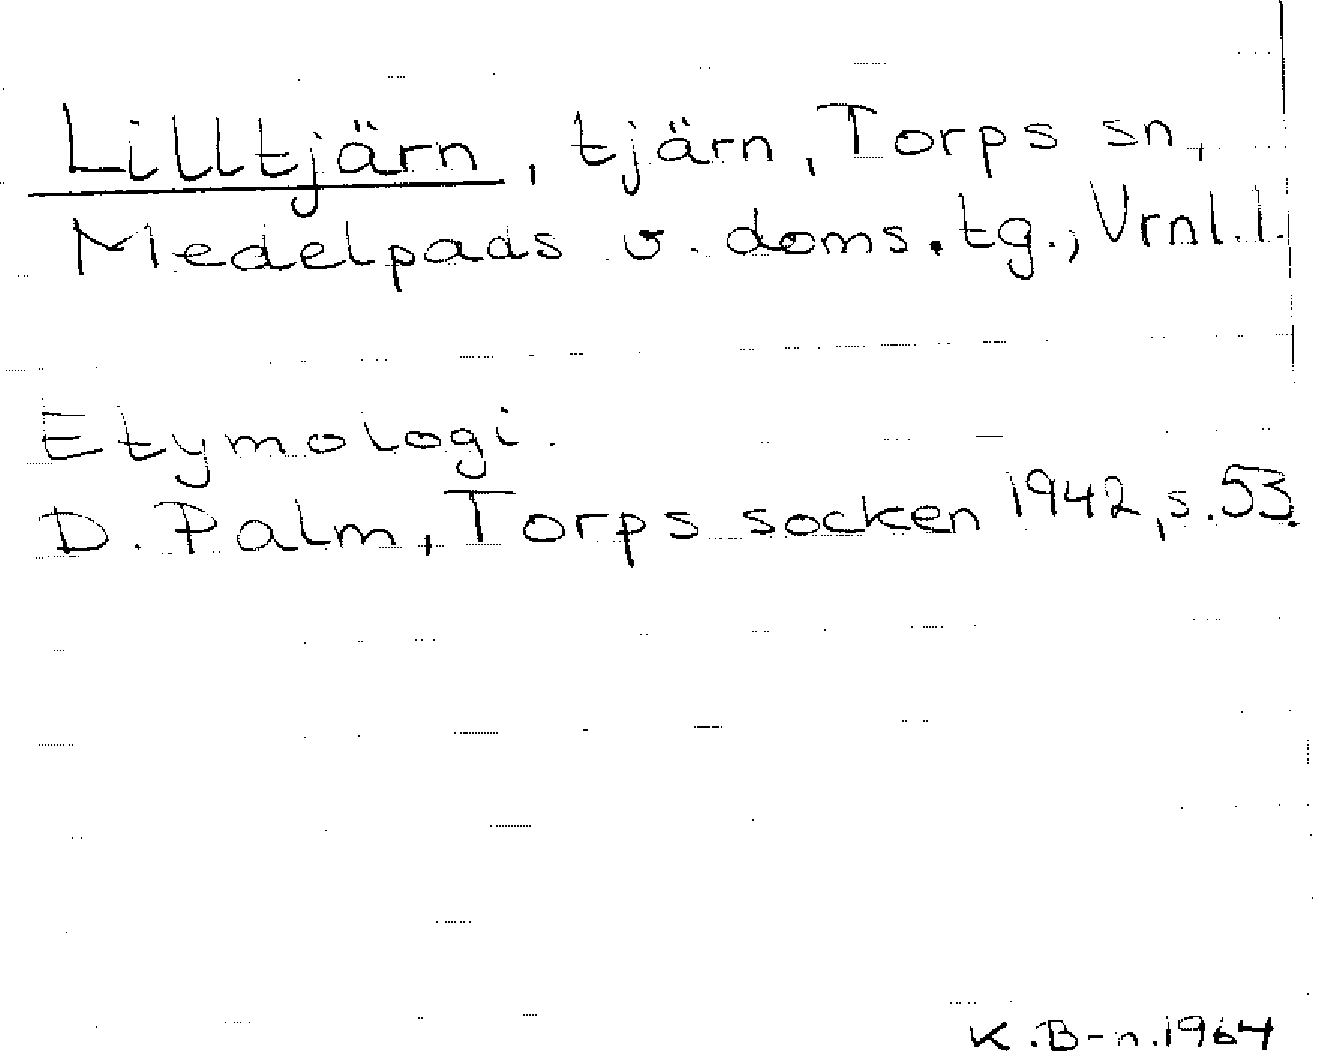 Lilltjärn, tjärn, Torps sn,
Medelpads v. doms.tg., Vrnl.l.
Etymologi.
D. Palm, Torps socken 1942, s. 53.
K.B-n.1964